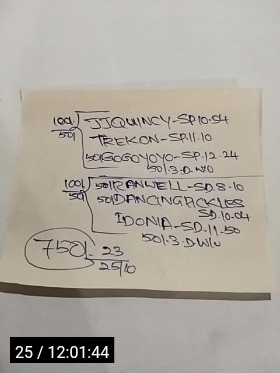 100/- JJQUINCY-SP.10.54
50/- TREKON-SP.11.10
50/GOGOYOYO-SP.12.24
50/.3.D.W/O
100/- 50/RANWELL-SD.8.10
50/- 50/DANCINGPICKLES
SD.10.04
IDONIA-SD.11.50
50/.3.D W/O
750/- 23
25/10
25 / 12:01:44